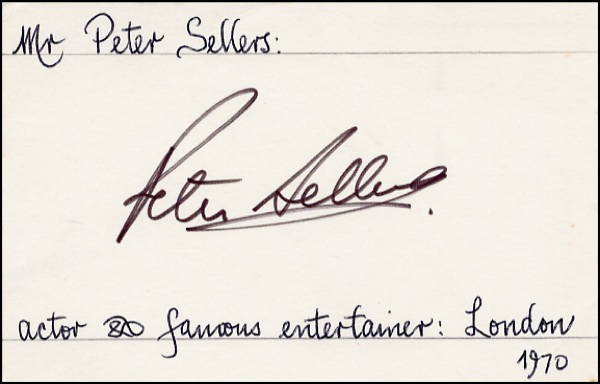 Mr Peter Sellers:
Peter Sellers.
actor & famous entertainer: London
1970